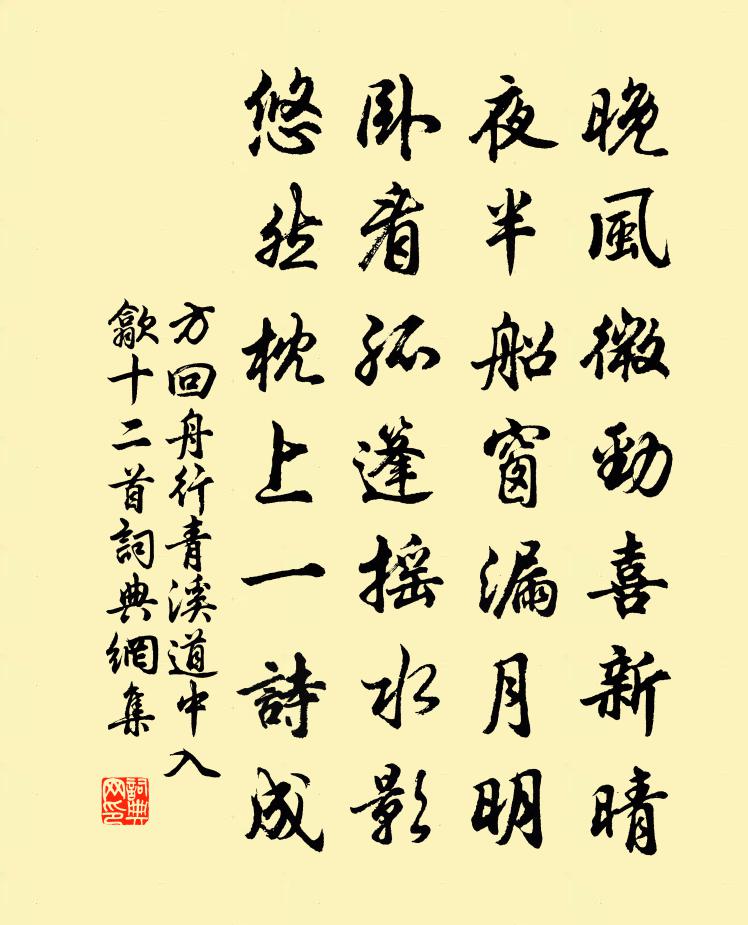 晚風微勁喜新晴
夜半船窗漏月明
臥看孤蓬搖水影
悠然枕上一詩成
方回舟行青溪道中入
歙十二首詞典網集
詞典
网印